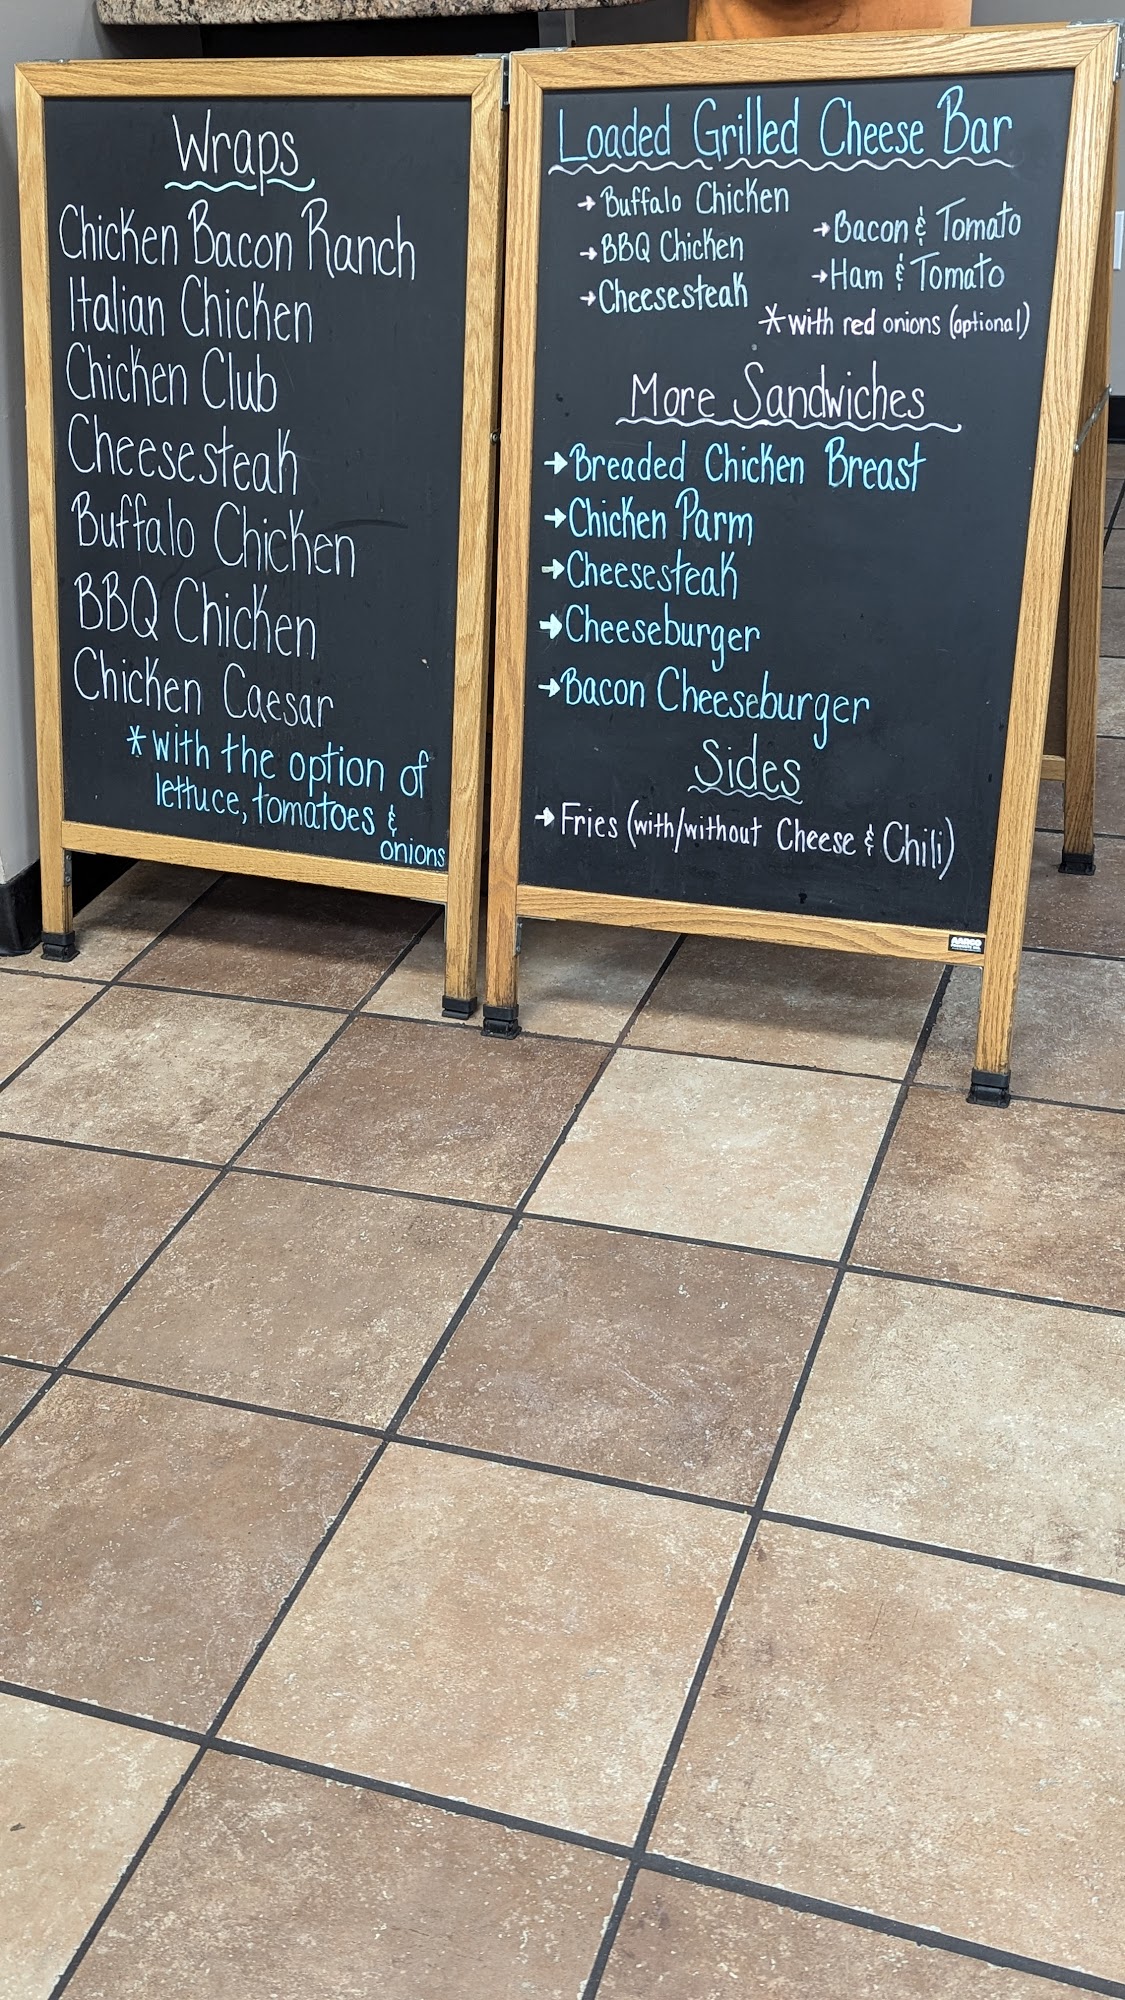 Wraps
Chicken Bacon Ranch
Italian Chicken
Chicken Club
Cheesesteak
Buffalo Chicken
BBQ Chicken
Chicken Caesar
* with the option of
lettuce, tomatoes &
onions
Loaded Grilled Cheese Bar
→ Buffalo Chicken
→ BBQ Chicken
→ Cheesesteak
→ Bacon & Tomato
→ Ham & Tomato
* with red onions (optional)
More Sandwiches
→ Breaded Chicken Breast
→ Chicken Parm
→ Cheesesteak
→ Cheeseburger
→ Bacon Cheeseburger
Sides
→ Fries (with/without Cheese & Chili)
AARCO